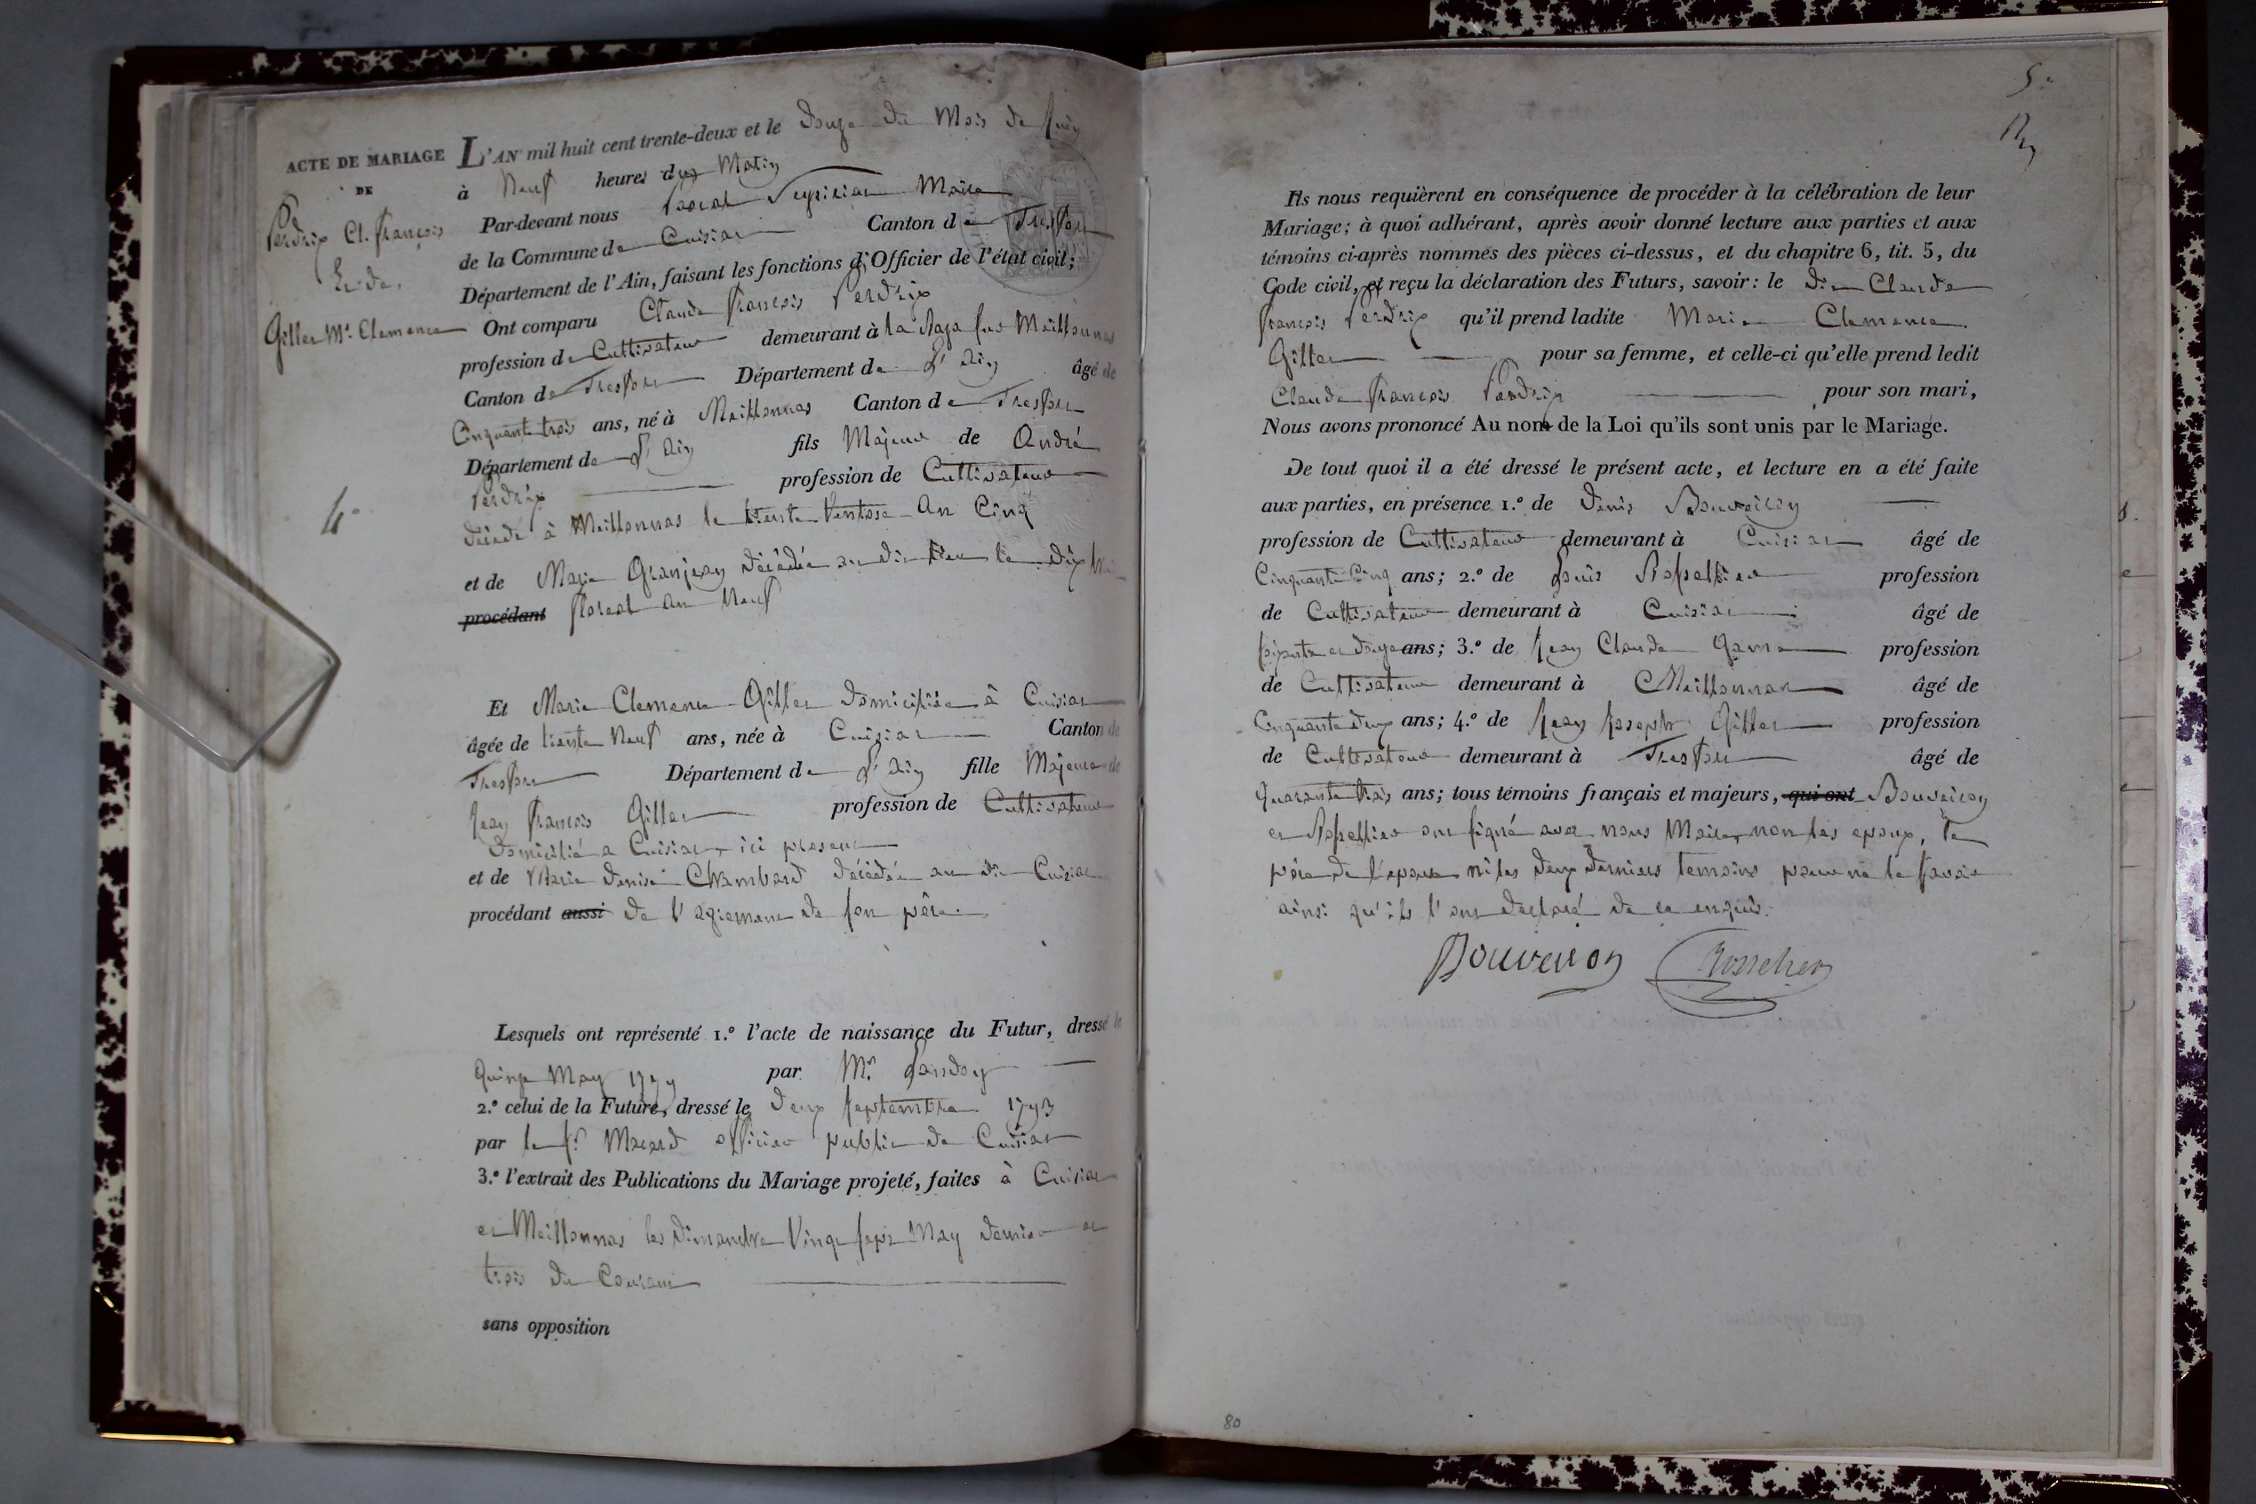 ACTE DE MARIAGE
DE
Perdrix Cl. François
Et de
Gillet Mie Clemence
4º
L'AN mil huit cent trente-deux et le Douze du Mois de Juin
à Neuf heures du Matin
Par-devant nous Maire
de la Commune de Cuisiat Canton de Treffort
Département de l'Ain, faisant les fonctions d'Officier de l'état civil;
Ont comparu Claude François Perdrix
profession de Cultivateur demeurant à Meillonnas
Canton de Treffort Département de l'Ain âgé de
Cinquante trois ans, né à Meillonnas Canton de Treffort
Département de l'Ain fils Majeur de André
Perdrix profession de Cultivateur
décédé à Meillonnas le trente Ventose An Cinq
et de Marie Granjean décédée au dit lieu le Dix
procédant floreal an Neuf
Et Marie Clemence Gillet Domiciliée à Cuisiat
âgée de trente Neuf ans, née à Cuisiat Canton de
Treffort Département de l'Ain fille Majeure de
Jean François Gillet profession de Cultivateur
Domicilié a Cuisiat, ici present
et de Marie Denise Chambard décédée au dit Cuisiat
procédant aussi de l'agrement de son père
Lesquels ont représenté 1.º l'acte de naissance du Futur, dressé le
quinze May 1779 par Mr.
2.º celui de la Future, dressé le Deux Septembre 1793
par le Sr. officier public de Cuisiat
3.º l'extrait des Publications du Mariage projeté, faites à Cuisiat
et Meillonnas les Dimanche Vingt sept May dernier et
trois du Courant
sans opposition
5.
Ils nous requièrent en conséquence de procéder à la célébration de leur
Mariage; à quoi adhérant, après avoir donné lecture aux parties et aux
témoins ci-après nommés des pièces ci-dessus, et du chapitre 6, tit. 5, du
Code civil, et reçu la déclaration des Futurs, savoir: le dit Claude
François Perdrix qu'il prend ladite Marie Clemence
Gillet pour sa femme, et celle-ci qu'elle prend ledit
Claude François Perdrix pour son mari,
Nous avons prononcé Au nom de la Loi qu'ils sont unis par le Mariage.
De tout quoi il a été dressé le présent acte, et lecture en a été faite
aux parties, en présence 1.º de Denis Bouveiron
profession de Cultivateur demeurant à Cuisiat âgé de
Cinquante Cinq ans; 2.º de Louis profession
de Cultivateur demeurant à Cuisiat âgé de
soixante et douze ans; 3.º de Jean Claude profession
de Cultivateur demeurant à Meillonnas âgé de
Cinquante deux ans; 4.º de Jean Joseph Gillet profession
de Cultivateur demeurant à Treffort âgé de
quarante trois ans; tous témoins français et majeurs, qui ont Bouveiron
et ont signé avec nous Maire, non les epoux, le
père de l'epouse ni les deux derniers temoins pour ne le savoir
ainsi qu'ils l'ont déclaré de ce enquis.
Bouveiron
80